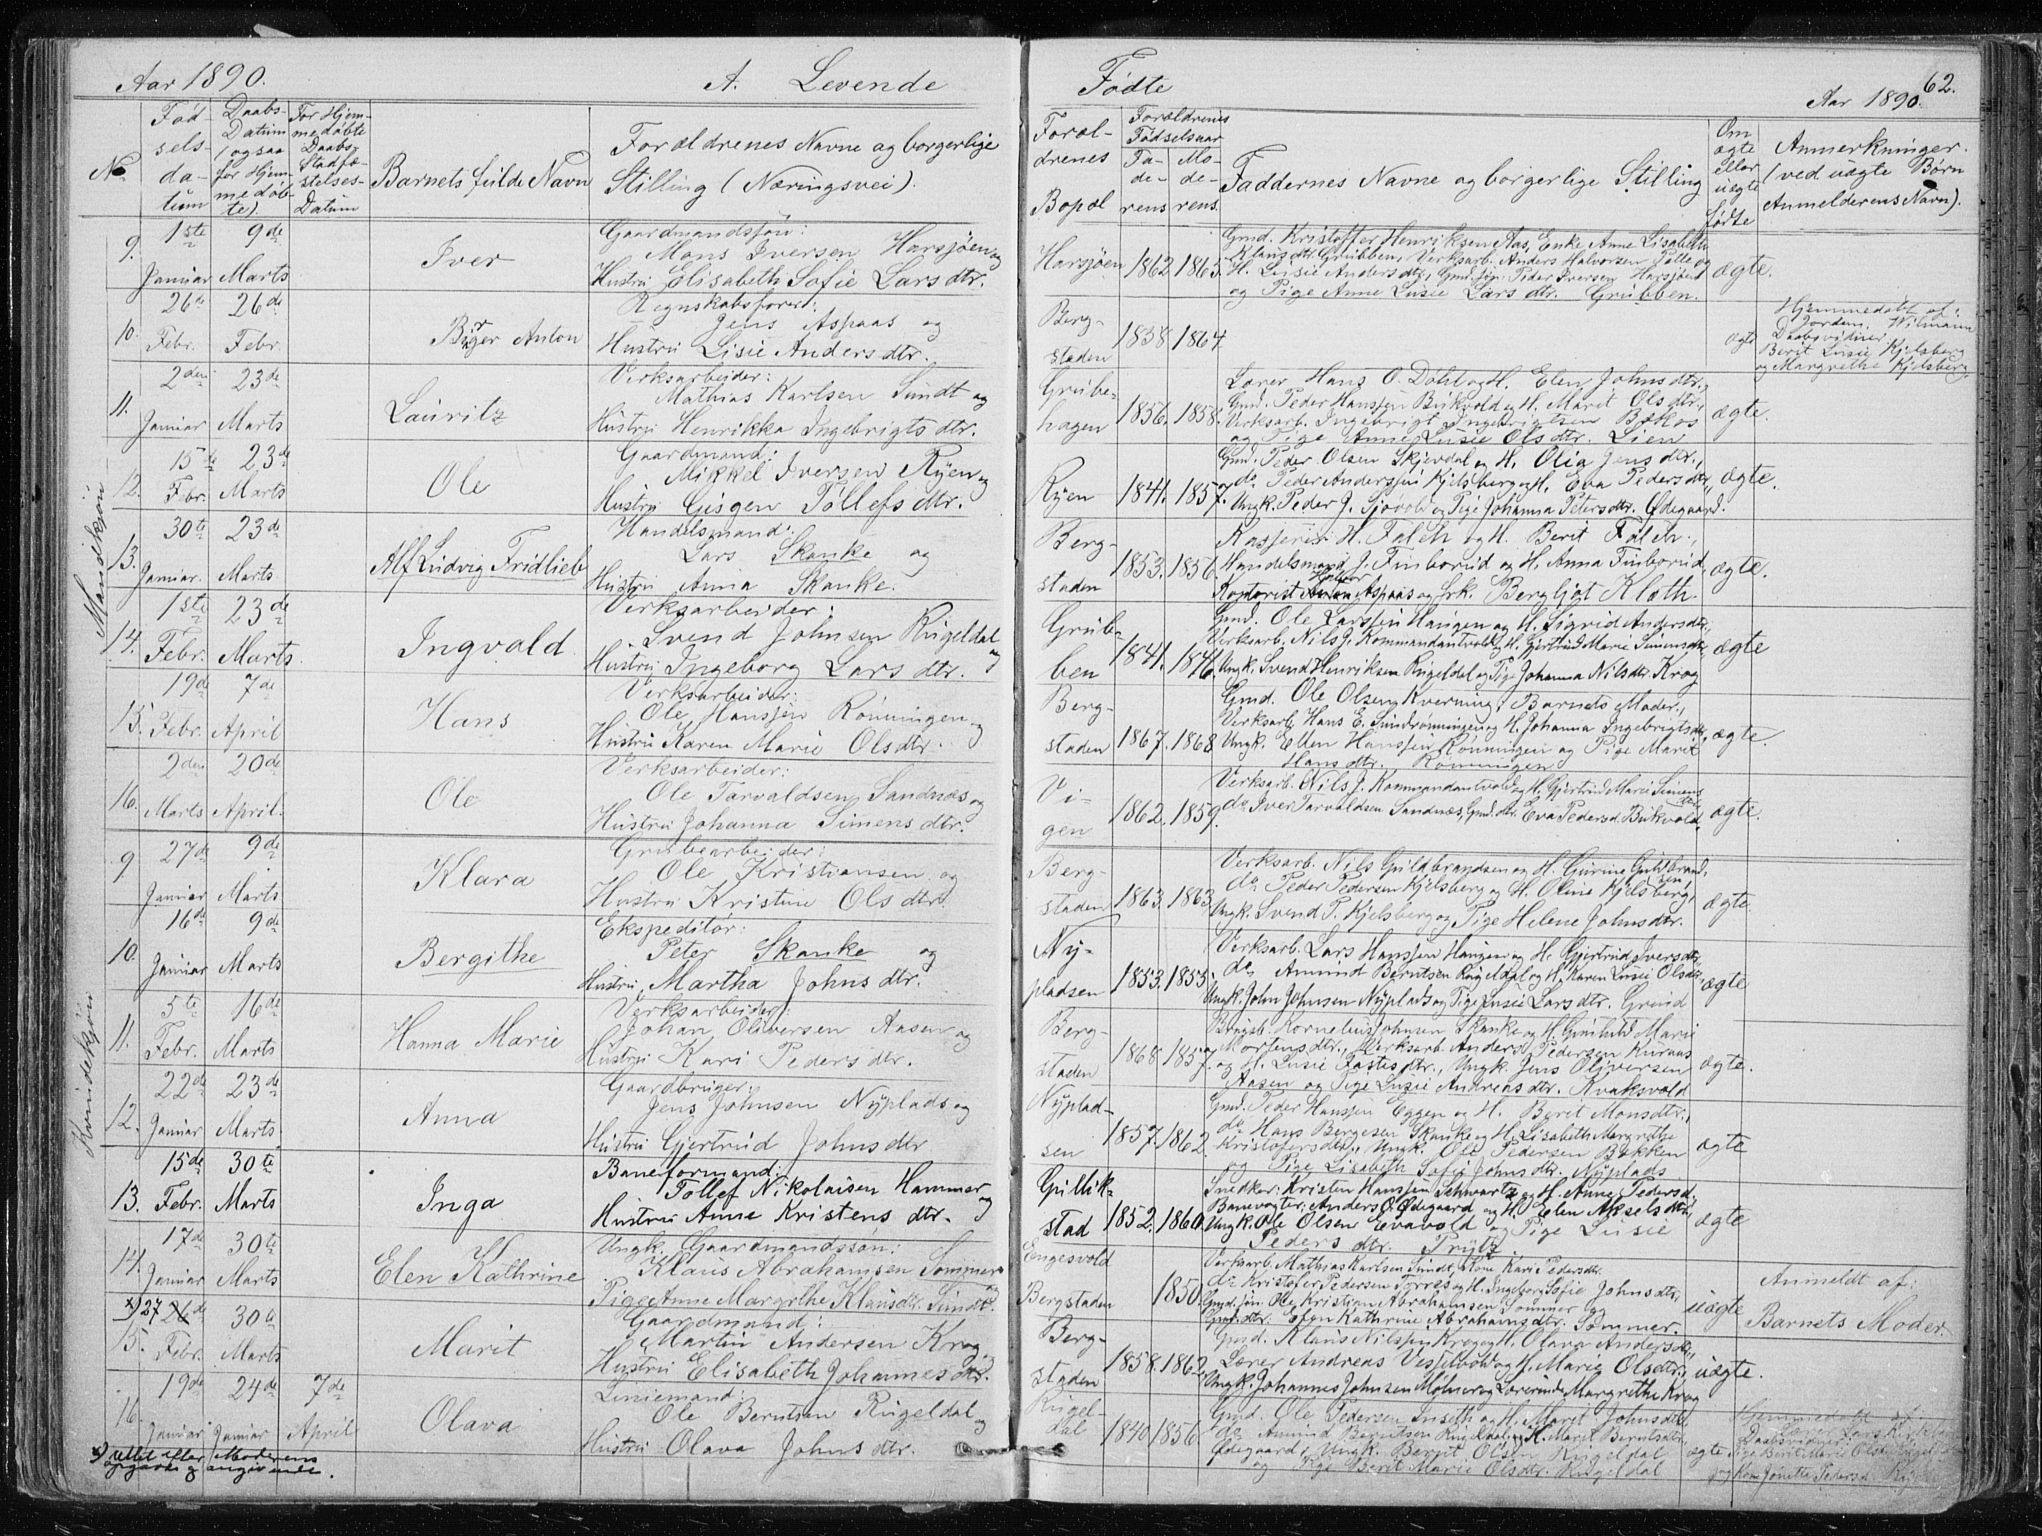 Aar 1890.
A. Levende
Fødte
62.
Aar 1890.
No
Fød-
sels-
da-
tum
Daabs-
Datum
(ogsaa
for Hjem-
medøb-
te).
For Hjem-
medøbte
Daabs
Stadfæ-
stelses-
Datum
Barnets fulde Navn
Forældrenes Navne og borgerlige
Stilling (Næringsvei).
Foræl-
drenes
Bopæl
Forældrenes
Fødselsaar
Fa-
de-
rens
Mo-
de-
rens.
Faddernes Navne og borgerlige Stilling
Om
ægte
eller
uægte
fødte
Anmerkninger.
(ved uægte Børn
Anmelderens Navn).
Mandkjøn
9.
1ste
Januar
9de
Marts
Iver
Gaardmandssøn:
Mons Iversen Harsjøen og
Hustru Elisabeth Sofie Larsdtr.
Harsjøen
1862
1865.
Gmd. Kristoffer Henriksen Aas, Enke Anne Lisabeth
Klausdtr. Grubben, Verksarb. Anders Halvorsen Tolle og
H. Lusie Andersdtr., Gmd.søn Peder Iversen Harsjøen
og Pige Anne Lusie Larsdtr. Grubben.
ægte.
10.
26de
Febr.
26de
Febr.
Birger Anton
Regnskabsfører:
Jens Aspaas og
Hustru Lisie Andersdtr.
Berg-
staden
1838
1864
ægte
Hjemmedøbt af:
Jordem. Wilmann
Daabsvidner
Berit Lusie Kjelsberg
og Margrethe Kjelsberg.
11.
2den
Januar
23de
Marts
Lauritz
Verksarbeider:
Mathias Karlsen Sundt og
Hustru Henrikka Ingebrigtsdtr.
Grube-
hagen
1856.
1858.
Lærer Hans O. Døhl og H. Elen Johnsdtr.,
Gmd. Peder Hansen Bukvold og H. Marit Olsdtr.,
Verksarb. Ingebrigt Ingebrigtsen Bækos
og Pige Anne Lusie Olsdtr. Lien
ægte.
12.
15de
Febr.
23de
Marts
Ole
Gaardmand:
Mikkel Iversen Ryen og
Hustru Gisgen Tollefsdtr.
Ryen
1841.
1857.
Gmd. Peder Olsen Skjevdal og H. Olia Jensdtr.,
do Peder Andersen Kjelsberg og H. Eva Pedersdtr.,
Ungk. Peder J. Sjøvold og Pige Johanna Petersdtr. Ødegaard.
ægte.
13.
30te
Januar.
23de
Marts
Alf Ludvig Fridlieb
Handelsmand:
Lars Skanke og
Hustru Anna Skanke.
Berg-
staden
1853.
1856.
Kasjerer H. Falch og H. Berit Falch.,
Handelsmand J. Finborud og H. Anna Finborud,
Kontorist Halvor Aspaas og frk. Bergljot Kloth.
ægte.
14.
1ste
Febr.
23de
Marts.
Ingvald
Verksarbeider:
Svend Johnsen Rugeldal og
Hustru Ingeborg Larsdtr.
Grub-
ben
1841.
1846.
Gmd. Ole Larssen Haugen og H. Sigrid Andersdtr.,
Verksarb. Nils J. Kommandantvold og H. Gjertrud Marie Simensdtr.,
Ungk. Svend Henriksen Rugeldal og Pige Johanna Nilsdtr. Krog
ægte
15.
19de
Febr.
7de
April
Hans
Verksarbeider:
Ole Hansen Rønningen og
Hustru Karen Marie Olsdtr.
Berg-
staden
1867.
1868
Gmd. Ole Olsen Kverning, Barnets Moder,
Verksarb. Hans E. Sundrønningen og H. Johanna Ingebrigtsdtr.,
Ungk. Ellen Hansen Rønningen og Pige Marit
Hansdtr. Rønningen
ægte.
16.
2den
Marts
20de
April.
Ole
Verksarbeider:
Ole Tarvaldsen Sandnæs og
Hustru Johanna Simensdtr.
Vi-
gen
1862.
1859.
Verksarb. Nils J. Kommandantvold og H. Gjertrud Marie Simensdtr.
do Iver Tarvaldsen Sandnæs, Gmd.dtr. Eva Pedersd. Bukvold.
ægte.
Kvindekjøn
9
27de
Januar
9de
Marts.
Klara
Grubearbeider:
Ole Kristiansen og
Hustru Kristine Olsdtr.
Berg-
staden
1863.
1863.
Verksarb. Nils Guldbrandsen og H. Gurine Guldbrandsen,
do Peder Pedersen Kjelsberg og H. Oline Kjelsberg,
Ungk. Svend P. Kjelsberg og Pige Helene Johnsdtr.
ægte
10.
16de
Januar
9de
Marts
Bergithe
Ekspeditør:
Peter Skanke og
Hustru Martha Johnsdtr.
Ny-
pladsen
1853.
1853.
Verksarb. Lars Hansen Haugen og H. Gjertrud Iversdtr.
do Amund Berntsen Rugeldal og H. Karen Lusie Olsdtr.
Ungk. John Johnsen Nyplads og Pige Lusie Larsdtr. Grind
ægte
11.
5te
Febr.
16de
Marts
Hanna Marie
Verksarbeider:
Johan Oliversen Aasen og
Hustru Kari Pedersdtr.
Berg-
staden
1868
1857.
Bergsb. Kornelius Johnsen Skanke og H. Gunhild Marie
Mortensdtr., Verksarb. Anders Pedersen Kuraas
og H. Lusie Fastesdtr., Ungk. Jens Oliversen
Aasen og Pige Lusie Andreasdtr. Kvaksvold
ægte.
12.
22de
Januar
23de
Marts.
Anna
Gaardbruger:
Jens Johnsen Nyplads og
Hustru Gjertrud Johnsdtr
Nyplad-
sen
1857.
1862.
Gmd. Peder Hansen Eggen og H. Berit Monsdtr.,
do Hans Bergesen Skanke og H. Lisabeth Margrethe
Kristofersdtr., Ungk. Ole Pedersen Bakken
og Pige Lisabeth Sofie Johnsdtr. Nyplads
ægte
13.
15de
Febr.
30te
Marts
Inga
Baneformand:
Tollef Nikolaisen Hammer og
Hustru Anne Kristensdtr.
Gullik-
stad
1852.
1860.
Snedker: Kristen Hansen Schwartz og H. Anne Pedersd.,
Banevogter: Anders O. Ødegaard og H. Elen Akselsdtr.,
Ungk. Ole Olsen Evavold og Pige Lusie
Pedersdtr. Prytz
ægte
14.
17de
Januar
30te
Marts
Elen Kathrine
Ungk. Gaardmandssøn:
Klaus Abrahamsen Sommer og
Pige Anne Margrthe Klausdtr. Sundt.
Engesvold
Bergstaden
1850.
Verksarb. Mathias Karlsen Sundt, Kone Kari Pedersdtr.
do Kristofer Pedersen Torres og H. Ingeborg Sofie Johnsdtr.,
Gmd.søn. Ole Kristian Abrahamsen Sommer og
Gmd.dtr. Elen Kathrine Abrahamsdtr. Sommer.
uægte
Anmeldt af:
Barnets Moder.
15.
x) 27 26de
Febr.
30te
Marts
Marit
Gaardmand:
Martin Andersen Krog og
Hustru Elisabeth Johannesdtr.
Berg-
staden
1858.
1862.
Gmd. Klaus Nilsen Krog og H. Olava Andersdtr.,
Lærer Andreas Vesselvold og H. Marie Olsdtr.,
Ungk. Johannes Johnsen Mølmer og Lærerinde Margrethe Krog
uægte.
16
19de
Januar
24de
Januar
7de
April
Olava
Liniemand:
Ole Berntsen Rugeldal og
Hustru Olava Johnsdtr.
Rugel-
dal
1840
1856
Gmd. Ole Pedersen Inseth og H. Marit Johnsdtr
do Amund Berntsen Rugeldal og H. Marit Berntsdtr.,
Ødegaard, Ungk. Bernt Olsen Rugeldal
og Pige Berit Marie Olsdtr. Rugeldal
ægte
Hjemmedøbt af
Daabsvidner
og Kone Jonette Pedersd.
x) rettet efter Moderens
opgave og angivende.